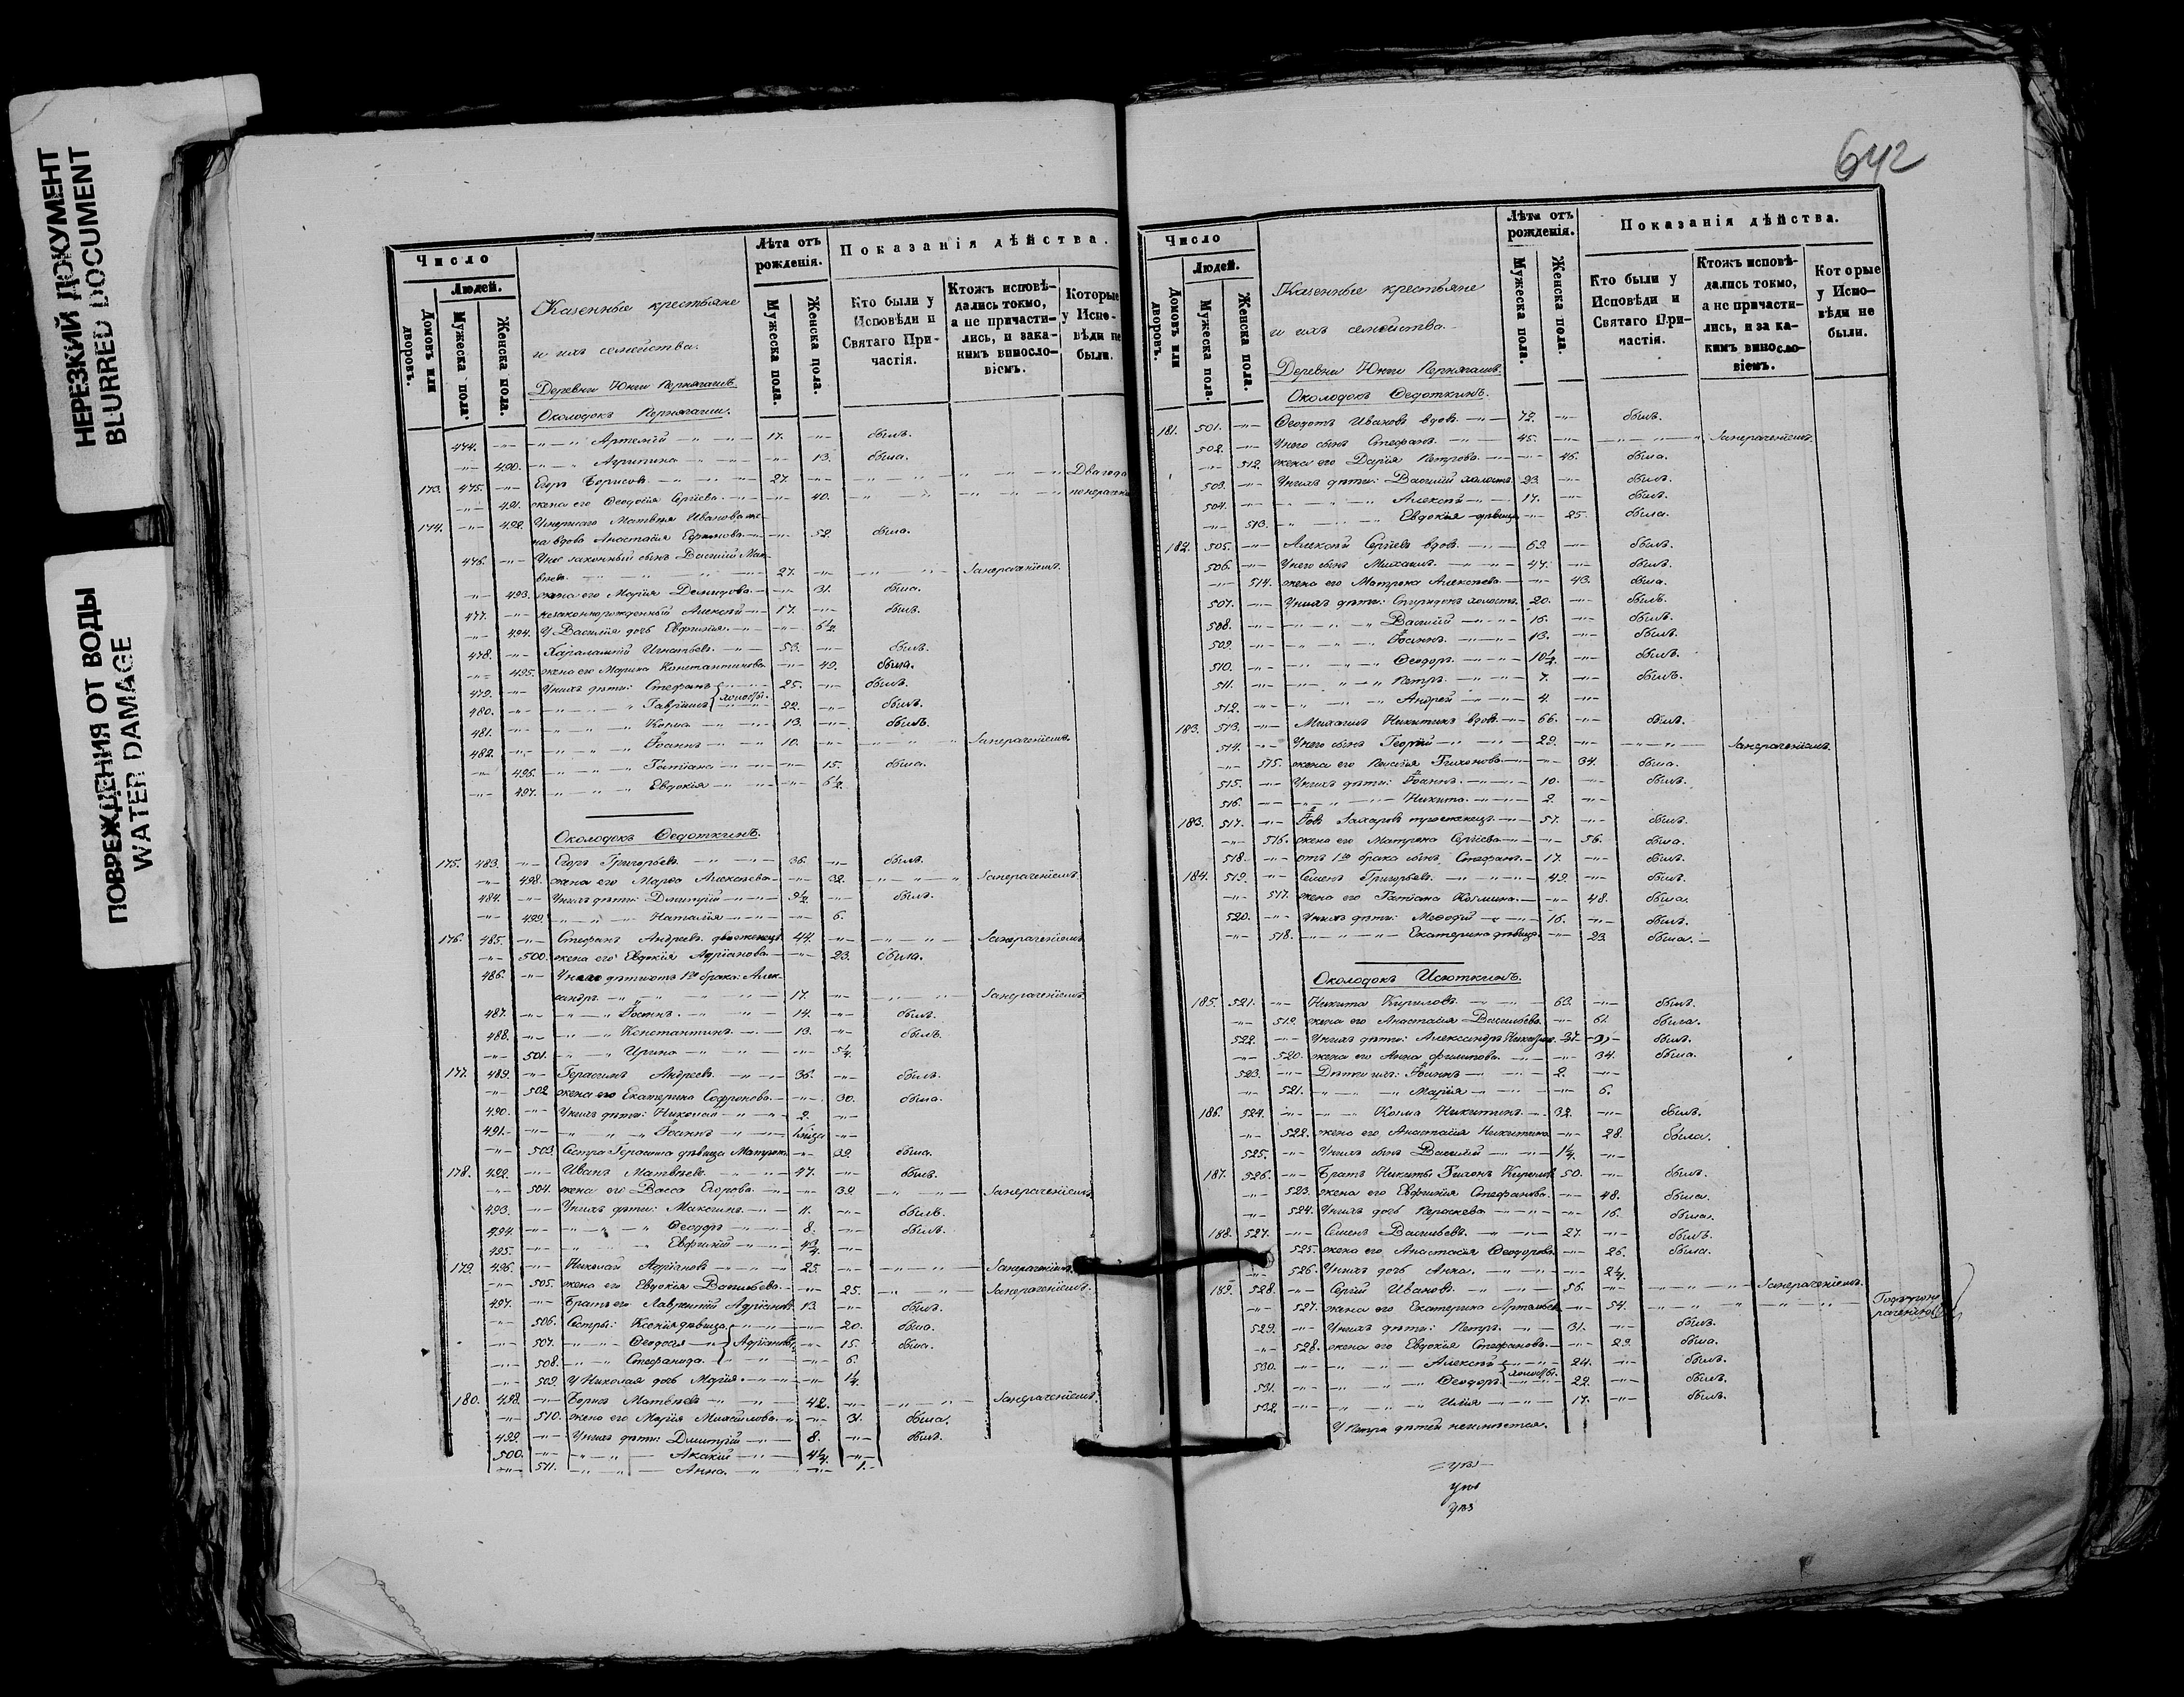 НЕРЕЗКИЙ ДОКУМЕНТ
BLURRED DOCUMENT
ПОВРЕЖДЕНИЯ ОТ ВОДЫ
WATER DAMAGE
Число
Людей.
Домовъ или дворовъ.
Мужеска пола.
Женска пола.
Казенные крестьяне
и ихъ семейства.
Деревни Юнги
Околодокъ
Лѣта отъ рожденія.
Мужеска пола.
Женска пола.
Показанія дѣйства.
Кто были у Исповѣди и Святаго Причастія.
Ктожъ исповѣдались токмо, а не причастились, и за какимъ винословіемъ.
Которые у Исповѣди не были.
474. -"- -"- Артемій 17. -"- былъ.
-"- 490. -"- Агрипина -"- 13. была.
173. 475. -"- Егоръ Борисовъ 27. -"- Два года
-"- 491. жена его Феодосія Сергіева -"- 40.
174. -"- 492. Умершаго Матвея Иванова же-
на вдова Анастасія -"- 52. была.
476. -"- Унее законный сынъ Василій Мат-
веевъ 27. -"- Занераченіемъ.
-"- 493. жена его Марія Демидова -"- 31. была.
477. -"- незаконнорожденный Алексѣй 17. -"- былъ.
-"- 494. У Василія дочь Евфимія -"- 6½
478. -"- Харалампій Игнатьевъ 53. -"- былъ.
-"- 495. жена его Марина Константинова -"- 49. была.
479. -"- Унихъ дѣти: Стефанъ 25. -"- былъ.
480. -"- Гавріилъ холосты. 22. -"- былъ.
481. -"- Козма 13. -"- былъ.
482. -"- Іоаннъ 10. -"- Занераченіемъ
-"- 496. Татіана -"- 15. была.
-"- 497. Евдокія -"- 6½
Околодокъ Федоткинъ.
175. 483. -"- Егоръ Григорьевъ 36. -"- былъ.
-"- 498. жена его Марфа Алексѣева -"- 32. Занераченіемъ
484. -"- Унихъ дѣти: Дмитрій 9½ -"- былъ.
-"- 499. Наталія -"- 6.
176. 485. -"- Стефанъ Андреевъ двоеженецъ 44. -"- Занераченіемъ
-"- 500. жена его Евдокія Адріанова -"- 23. была.
486. -"- Унего дѣти отъ 1го брака: Алек-
сандръ 17. -"- Занераченіемъ
487. -"- Іоаннъ 14. -"- былъ.
488. -"- Константинъ 13. -"- былъ.
-"- 501. Ирина -"- 5¼
177. 489. -"- Герасимъ Андреевъ 36. -"- былъ.
-"- 502. жена его Екатерина Софронова -"- 30. была.
490. -"- Унихъ дѣти: Николай 2. -"-
491. -"- Іоаннъ -"-
-"- 503. Сестра Герасима дѣвица Матрона -"- 39. была.
178. 492. -"- Иванъ Матвѣевъ 47. -"- былъ.
-"- 504. жена его Васса Егорова -"- 39. Занераченіемъ
493. -"- Унихъ дѣти: Максимъ 11. -"- былъ.
494. -"- Феодоръ 8. -"- былъ.
495. -"- Евфимій 4¾ -"-
179. 496. -"- Николай Адріановъ 25. -"- Занераченіемъ
-"- 505. жена его Евдокія Васильева -"- 25. Занераченіемъ
497. -"- Братъ его Лаврентій Адріановъ 13. -"- былъ.
-"- 506. Сестры: Ксенія дѣвица -"- 20. была.
-"- 507. Феодосія Адріановы -"- 15. была.
-"- 508. Стефанида -"- 6.
-"- 509. У Николая дочь Марія -"- 1¼
180. 498. -"- Борисъ Матвѣевъ 42. -"- Занераченіемъ
-"- 510. жена его Марія Михайлова -"- 31. была.
499. -"- Унихъ дѣти: Дмитрій 8. -"- былъ.
500. -"- Акакій 4¼ -"-
-"- 511. Анна -"- 1.
642
Число
Людей.
Домовъ или дворовъ.
Мужеска пола.
Женска пола.
Казенные крестьяне
и ихъ семейства.
Деревни Юнги
Околодокъ Федоткинъ.
Лѣта отъ рожденія.
Мужеска пола.
Женска пола.
Показанія дѣйства.
Кто были у Исповѣди и Святаго Причастія.
Ктожъ исповѣдались токмо, а не причастились, и за какимъ винословіемъ.
Которые у Исповѣди не были.
181. 501. -"- Феодотъ Ивановъ вдовъ 72. -"- былъ.
502. -"- Унего сынъ Стефанъ 45. -"- Занераченіемъ
-"- 512. жена его Дарія Петрова -"- 46. была.
503. -"- Унихъ дѣти: Василій холостъ 23. -"- былъ.
504. -"- Алексѣй 17. -"- былъ.
-"- 513. Евдокія дѣвица -"- 25. была.
182. 505. -"- Алексѣй Сергіевъ вдовъ 69. -"- былъ.
506. -"- Унего сынъ Михаилъ 47. -"- былъ.
-"- 514. жена его Матрона Алексѣева -"- 43. была.
507. -"- Унихъ дѣти: Спиридонъ холостъ 20. -"- былъ.
508. -"- Василій 16. -"- былъ.
509. -"- Іоаннъ 13. -"- былъ.
510. -"- Феодоръ 10½ -"- былъ.
511. -"- Петръ 7. -"- былъ.
512. -"- Андрей 4. -"-
183. 513. -"- Михаилъ Никитинъ вдовъ 66. -"- былъ.
514. -"- Унего сынъ Георгій 29. -"- Занераченіемъ
-"- 515. жена его Тихонова -"- 34. была.
515. -"- Унихъ дѣти: Іоаннъ 10. -"- былъ.
516. -"- Никита 2. -"-
183. 517. -"- Іовъ Захаровъ троеженецъ 57. -"- былъ.
-"- 516. жена его Матрона Сергіева -"- 56. была.
518. -"- отъ 1го брака сынъ Стефанъ 17. -"- былъ.
184. 519. -"- Семенъ Григорьевъ 49. -"- былъ.
-"- 517. жена его Татіана Козмина -"- 48. была.
520. -"- Унихъ дѣти: Мефодій 16. -"- былъ.
-"- 518. Екатерина дѣвица -"- 23. была.
Околодокъ Исюткинъ.
185. 521. -"- Никита Кириловъ 60. -"- былъ.
-"- 519. жена его Анастасія Васильева -"- 61. была.
522. -"- Унихъ дѣти: Александръ Никитинъ 37. -"- былъ.
-"- 520. жена его Анна Филипова -"- 34. была.
523. -"- Дѣти ихъ: Іоаннъ 2. -"-
-"- 521. Марія -"- 6.
186. 524. -"- Козма Никитинъ 32. -"- былъ.
-"- 522. жена его Анастасія Никитина -"- 28. была.
525. -"- Унихъ сынъ Василій 1¼ -"-
187. 526. -"- Братъ Никиты Тихонъ Кириловъ 50. -"- былъ.
-"- 523. жена его Евфимія Стефанова -"- 48. была.
-"- 524. Унихъ дочь Параскева -"- 16. была.
188. 527. -"- Семенъ Васильевъ 27. -"- былъ.
-"- 525. жена его Анастасія Феодорова -"- 26. была.
-"- 526. Унихъ дочь Анна -"- 2¼
189. 528. -"- Сергій Ивановъ 56. -"- Занераченіемъ.
-"- 527. жена его Екатерина -"- 54.
529. -"- Унихъ дѣти: Петръ 31. -"- былъ.
-"- 528. жена его Евдокія Стефанова -"- 29. была.
530. -"- Алексѣй 24. -"- былъ.
531. -"- Феодоръ холосты. 22. -"- былъ.
532. -"- Илія 17. -"- былъ.
У Петра дѣтей неимѣется.